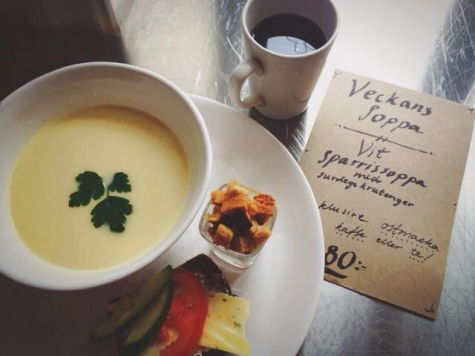 Veckans
Soppa
Vit
Sparrissoppa
med
surdegskrutonger
klusive ostmacka
kaffe eller te!
80:-